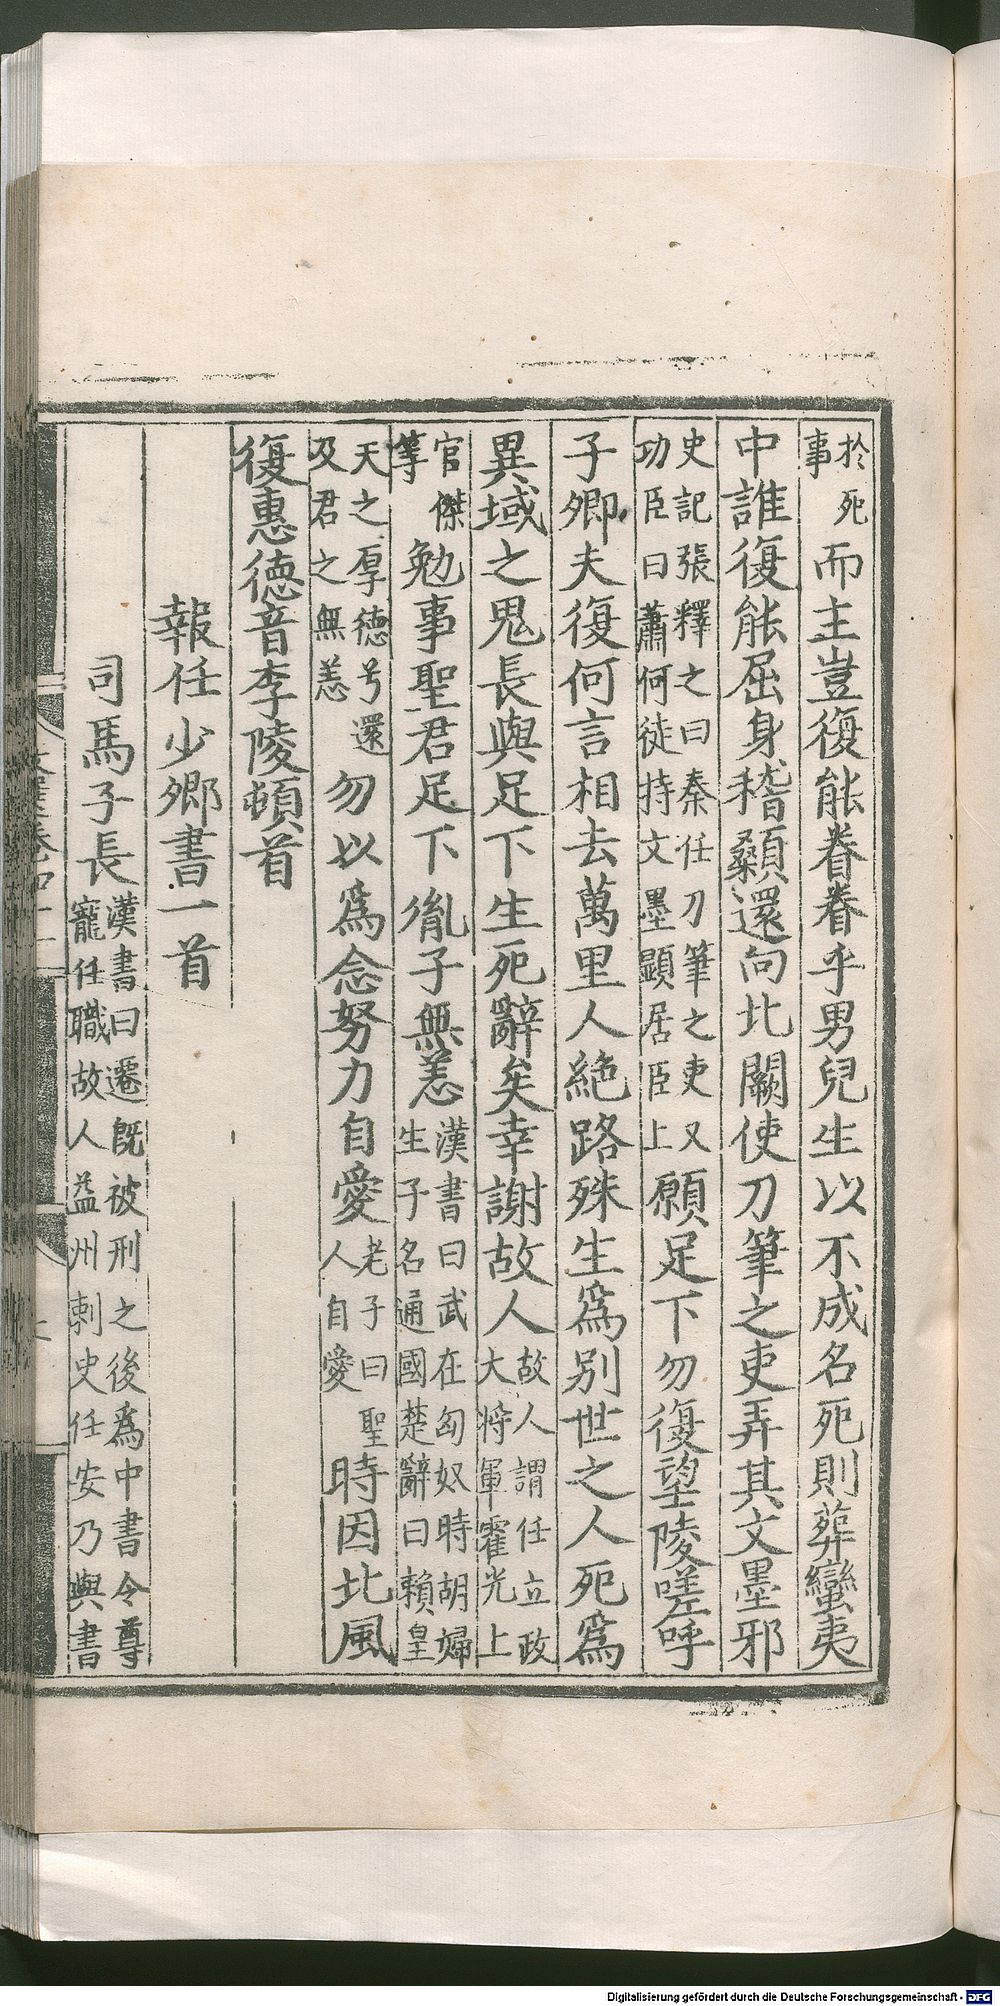 於死事而主豈復能眷眷乎男兒生以不成名死則葬蠻夷
中誰復能屈身稽顙還向北闕使刀筆之吏弄其文墨邪
史記張釋之曰秦任刀筆之吏又功臣曰蕭何徒持文墨顯居臣上願足下勿復望陵嗟呼
子卿夫復何言相去萬里人絕路殊生爲别世之人死爲
異域之鬼長與足下生死辭矣幸謝故人故人謂任立政大將軍霍光上
官傑等勉事聖君足下胤子無恙漢書曰武在匈奴時胡婦生子名通國楚辭曰賴皇
天之厚德兮還及君之無恙勿以爲念努力自愛老子曰聖人自愛時因北風
復惠德音李陵頓首
報任少卿書一首
司馬子長漢書曰遷旣被刑之後爲中書令尊寵任職故人益州刺史任安乃與書
Digitalisierung gefördert durch die Deutsche Forschungsgemeinschaft - DFG